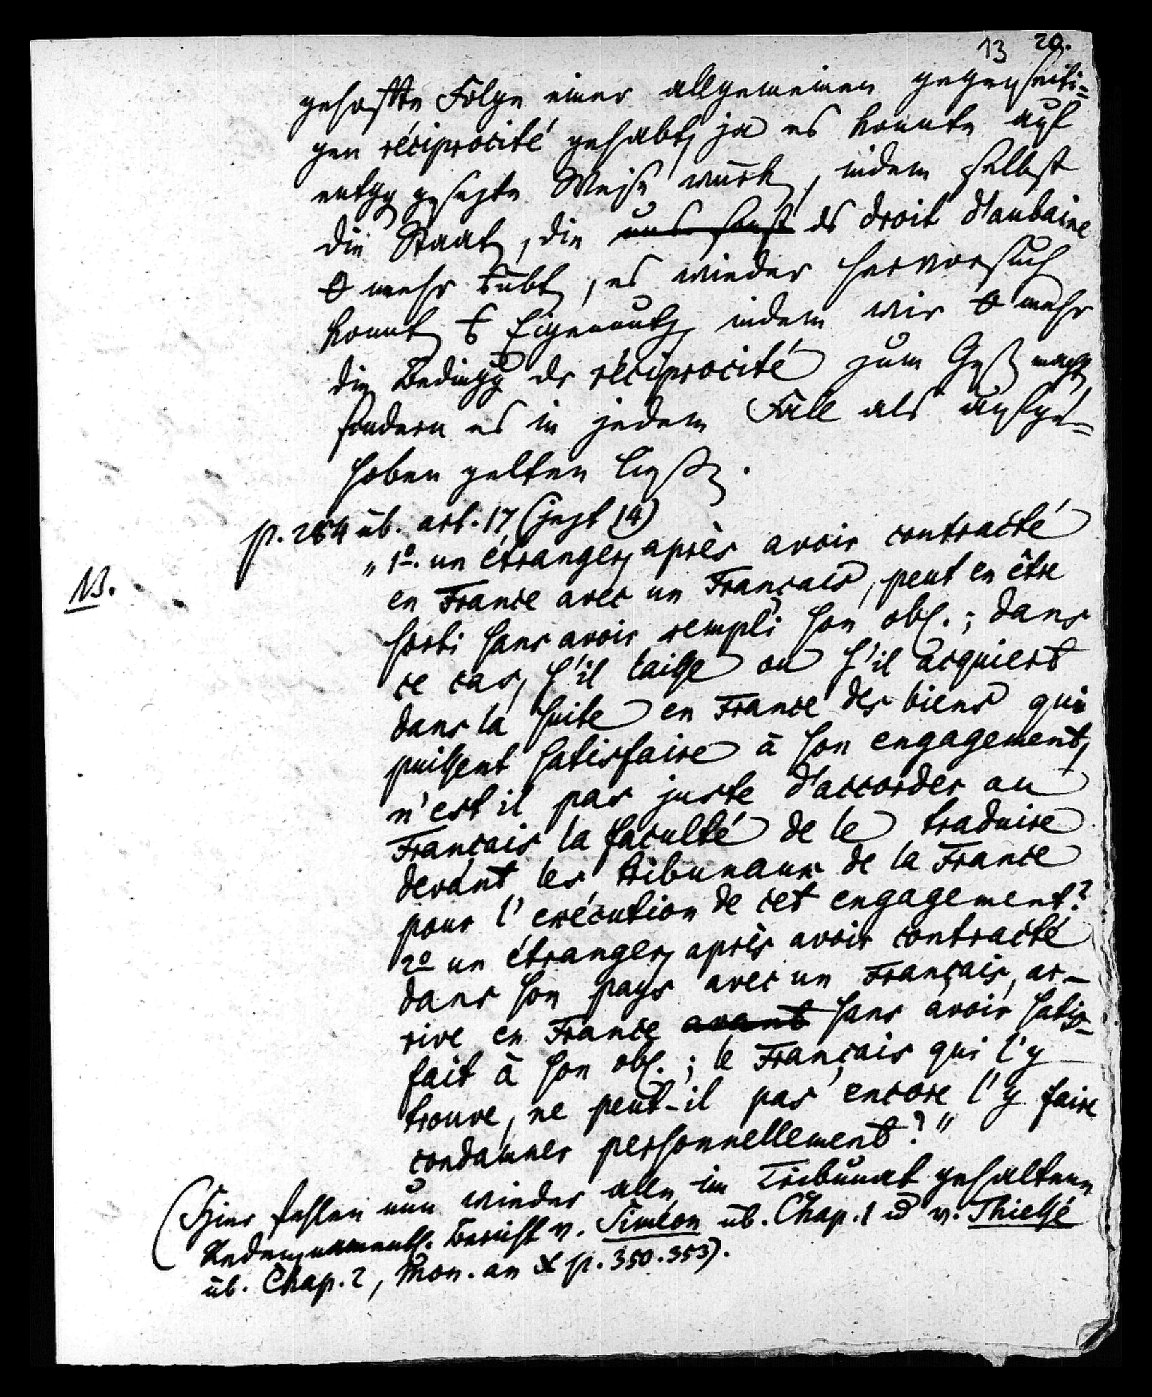 13 20.
gehoffte Folge einer allgemeinen gegenseiti=
gen réciprocité gehabt, ja es konnte auf
entgg gesezte Weise wirken, indem selbst
die Staaten, die uns sonst ds droit d'aubaine
mehr übt, es wieder hervorsuchen
konnten Eigennutz, indem wir mehr
die Bedingg dr réciprocité zum Gesetz machten,
sondern es in jedem Fall als aufge=
hoben gelten ließen.
p. 264 üb. art. 17 (jezt 14)
NB.
„1º. un étranger, après avoir contracté
en France avec un Français, peut en être
sorti sans avoir rempli son obl.; dans
ce cas, s'il laisse ou s'il acquiert
dans la suite en France des biens qui
puissent satisfaire à son engagement,
n'est il pas juste d'accorder au
Français la faculté de le traduire
devant les tribunaux de la France
pour l'exécution de cet engagement?
2º un étranger, après avoir contracté
dans son pays avec un Français, ar-
rive en France avant sans avoir satis-
fait à son obl.; le Français qui l'y
trouve, ne peut-il pas encore l'y faire
condamner personnellement?"
(Hier fehlen nun wieder alle im Tribunat gehaltene
Reden, namentl. Bericht v. Siméon üb. Chap. 1 u v. Thiessé
üb. Chap. 2, Mon. an X p. 350. 353).